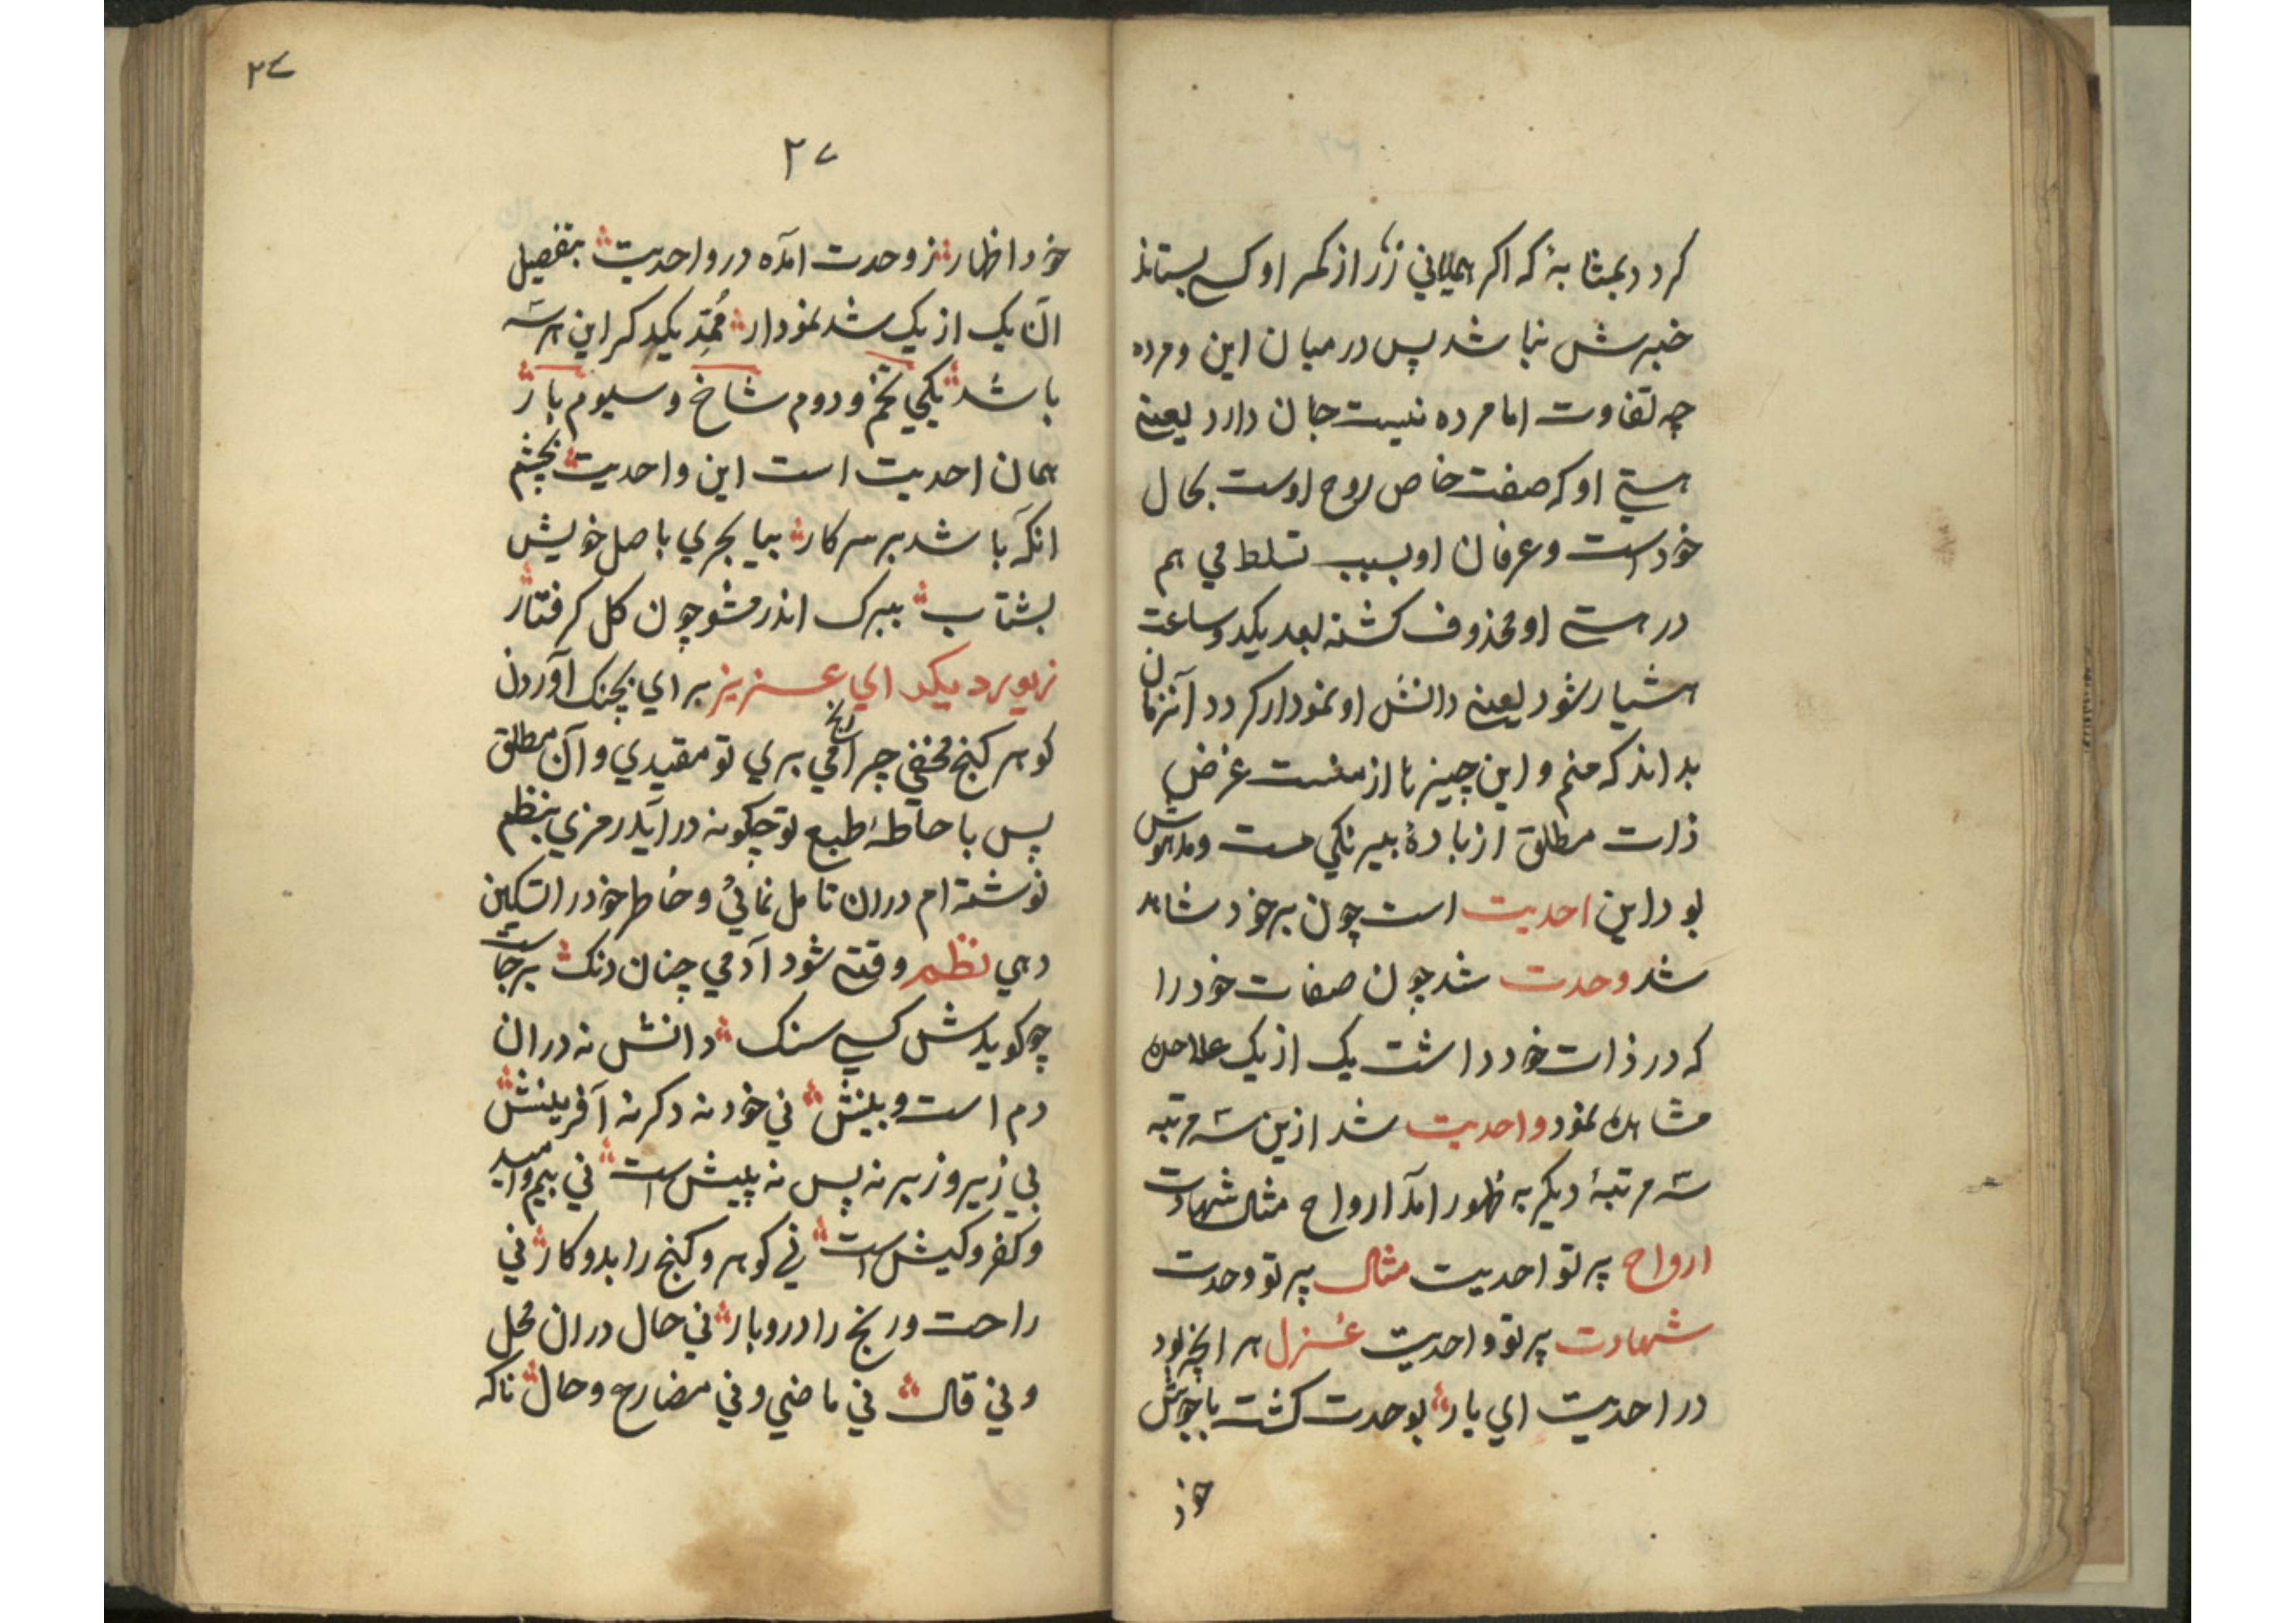 کردد بمثابهٔ که اکر همیانی زر از کمر او کسی بستاند
خبرش نباشد پس درمیان این و مرده
چه تفاوت اما مرده نیست جان دارد یعنے
هستے او که صفت خاص روح اوست بحال
خود است و عرفان او بسبب تسلط مي هم
در هستے او محذوف کشته بعد یکدو ساعت
هشیار شود یعنے دانش او نمودار کردد آنزمان
بداند که منم و این چیزها از منست غرض
ذات مطلق از بادهٔ بیرنکي مست و مدهوش
بود این احدیت است چون برخود شاهد
شد وحدت شد چون صفات خود را
که در ذات خود داشت یک از یک علاحده
مشاهده نمود واحدیت شد ازین سه مرتبه
سه مرتبهٔ دیکر به ظهور آمد ارواح مثال شهادت
ارواح پرتو احدیت مثال پرتو وحدت
شهادت پرتو واحدیت غزل هر انچه بود
در احدیت اي یار بوحدت کشت با جوش
خود
۲۷
۲۷
خود اظهار ز وحدت آمده در واحدیت بتفصیل
آن یک از یک شد نمودار مُمِدّ یکدکر این هرسه
باشد یکي تخم و دوم شاخ و سیوم بار
همان احدیت است این واحدیت بچشم
آنکه باشد بر سر کار بیا بحري باصل خویش
بشتاب ببرک اندر مشو چون کل کرفتار
زیور دیکر اي عزیز براي بچنک آوردن
کوهر کنج مخفي چرا رنج مي بري تو مقیدي و آن مطلق
پس باحاطهٔ طبع تو چکونه در آید رمزي بنظم
نوشته ام دران تامل نمائي و خاطر خود را تسکین
دهي نظم وقتے شود آدمي چنان دنک برجاست
چو کویدش کسي سنک دانش نه دران
دم است و بینش ني خود نه دکر نه آفرینش
بي زیر و زبر نه پس نه پیش است ني بیم و امید
و کفر و کیش است ني کوهر و کنج را بدو کار ني
راحت و رنج را درو بار ني حال دران محل
و ني قال ني ماضي و ني مضارع و حال ناکه